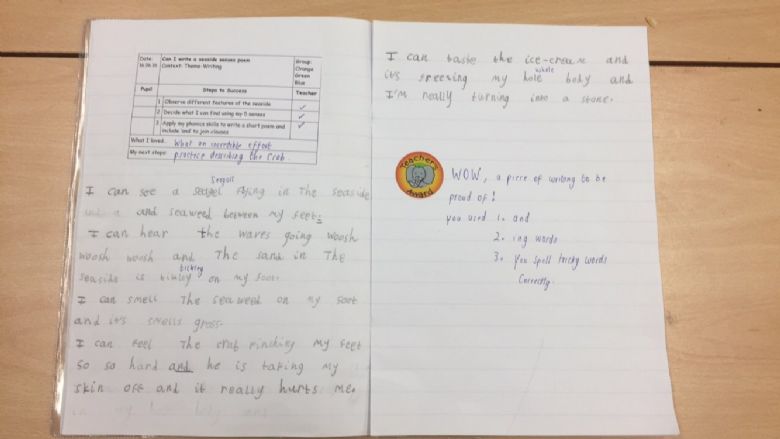 Date: 16.06.20 Can I write a seaside senses poem Group:
Context: Theme- Writing Orange
Green
Blue
Pupil Steps to Success Teacher
1 Observe different features of the seaside ✓
2 Decide what I can find using my 5 senses ✓
3 Apply my phonics skills to write a short poem and include 'and' to join clauses ✓
What I loved... What an incredible effort
My next steps: practice describing the crab.
Seagull
I can see a flying in the seaside
and seaweed between my feet.
I can hear the waves going woosh
woosh woosh and The sand in The
tickling
seaside is on my foot.
I can smell The seaweed on my foot
and it's smells gross.
I can feel The crab pinching my feet
so so hard and he is taking my
skin off and it really hurts me.
I can taste the ice-cream and
whole
it's freezing my hole body and
I'm really turning into a stone.
Teacher's Award
WOW, a piece of writing to be
proud of!
you used 1. and
2. ing words
3. you spell tricky words
correctly.